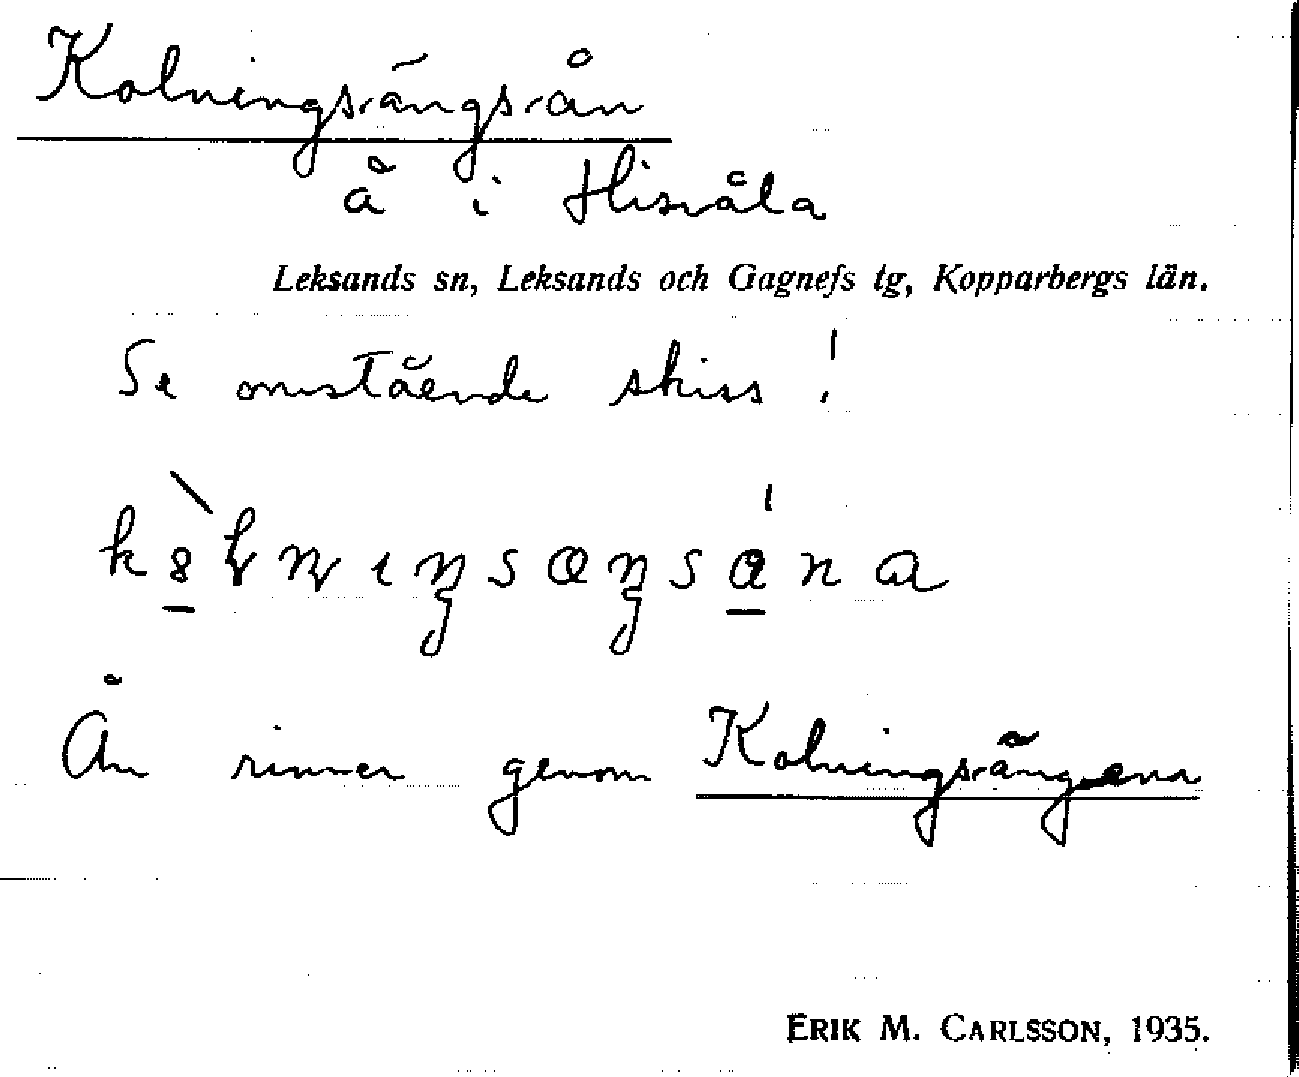 Kolningsängsån
å i Hisvåla
Leksands sn, Leksands och Gagnefs tg, Kopparbergs län.
Se omstående skiss!
Ån rinner genom Kolningsängena
ERIK M. CARLSSON, 1935.